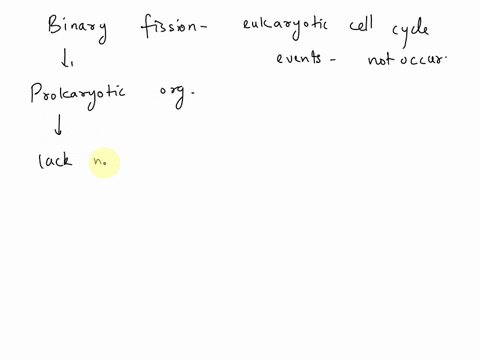 Binary fission- eukaryotic cell cycle
events - not occur.
Prokaryotic org.
lack n.